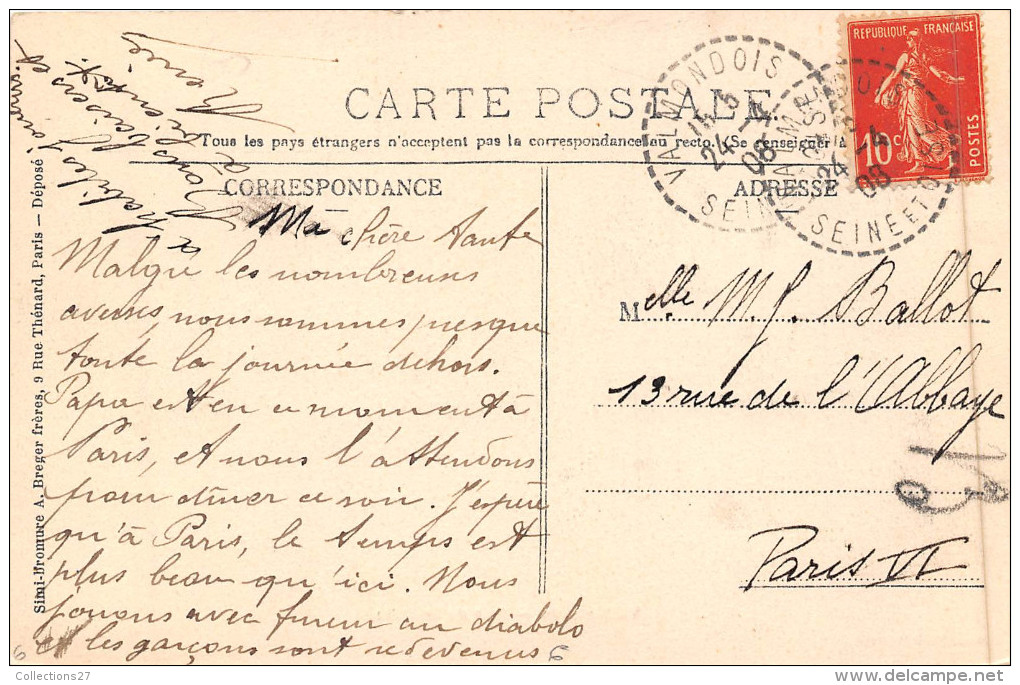 RÉPUBLIQUE FRANÇAISE
10c
POSTES
VALMONDOIS
24 -4
08
SEINE ET OISE
24 -4
08
CARTE POSTALE.
Tous les pays étrangers n'acceptent pas la correspondance au recto. (Se renseigner à
CORRESPONDANCE
ADRESSE
Ma chère Tante
Malgré les nombreuses
averses, nous sommes presque
toute la journée dehors.
Papa est en ce moment à
Paris, et nous l'attendons
pour dîner ce soir. J'espère
qu'à Paris, le temps est
plus beau qu'ici. Nous
jouons avec fureur au diabolo
et les garçons sont redevenus
habiles à
Bons baisers et
à bientôt.
Renée
Melle M. J. Ballot
13 rue de l'Abbaye
Paris VI
Simi-Bromure A. Breger frères, 9 Rue Thénard, Paris — Déposé
6
6
Collections27
delcampe.net